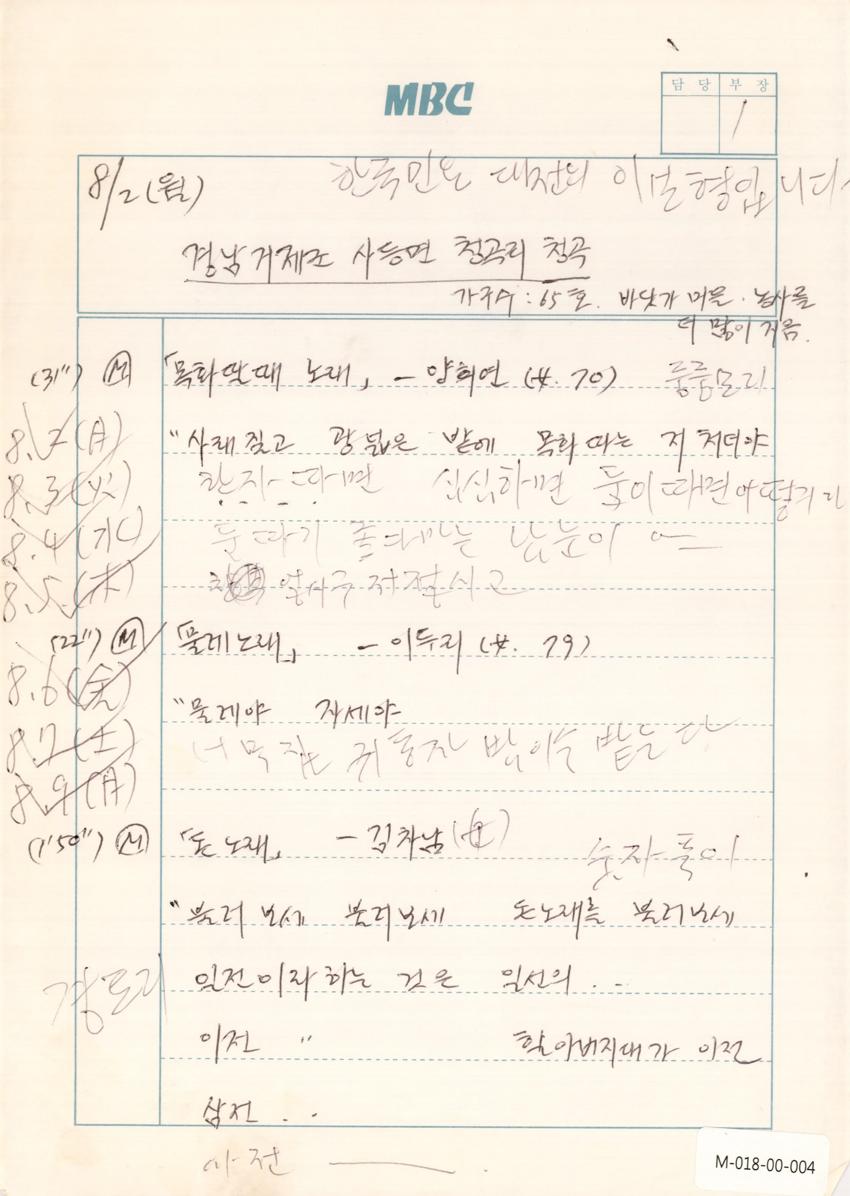 MBC
담 당 부 장
8/2 (월) 한국민요 대전의 이보형입니다.
경남 거제군 사등면 청곡리 청곡
가구수 : 65호. 바닷가 마을. 농사를
더 많이 지음.
(31") Ⓜ 「목화 따는 때 노래」 - 양희연 (女. 70) 중중모리
8. 2 (月) "사래 짚고 광 넓은 밭에 목화 따는 저 처녀야
8. 3 (火) 혼자 따면 심심하면 둘이 따면 어떻리까
8. 4 (水) 둘 따기 좋지마는
8. 5. (木)
(22") Ⓜ 「물레노래」 - 이두리 (女. 79)
8. 6 (金)
"물레야 자세야
8. 7 (土)
8. 9 (月)
(1'50") Ⓜ 「돈노래」 - 김차남 (女) 숫자풀이
"불러보세 불러보세 돈노래를 불러보세
경토리 일전이라 하는 것은 일선의 ..
이전 " 할아버지대가 이전
삼전 . .
사전 .
M-018-00-004